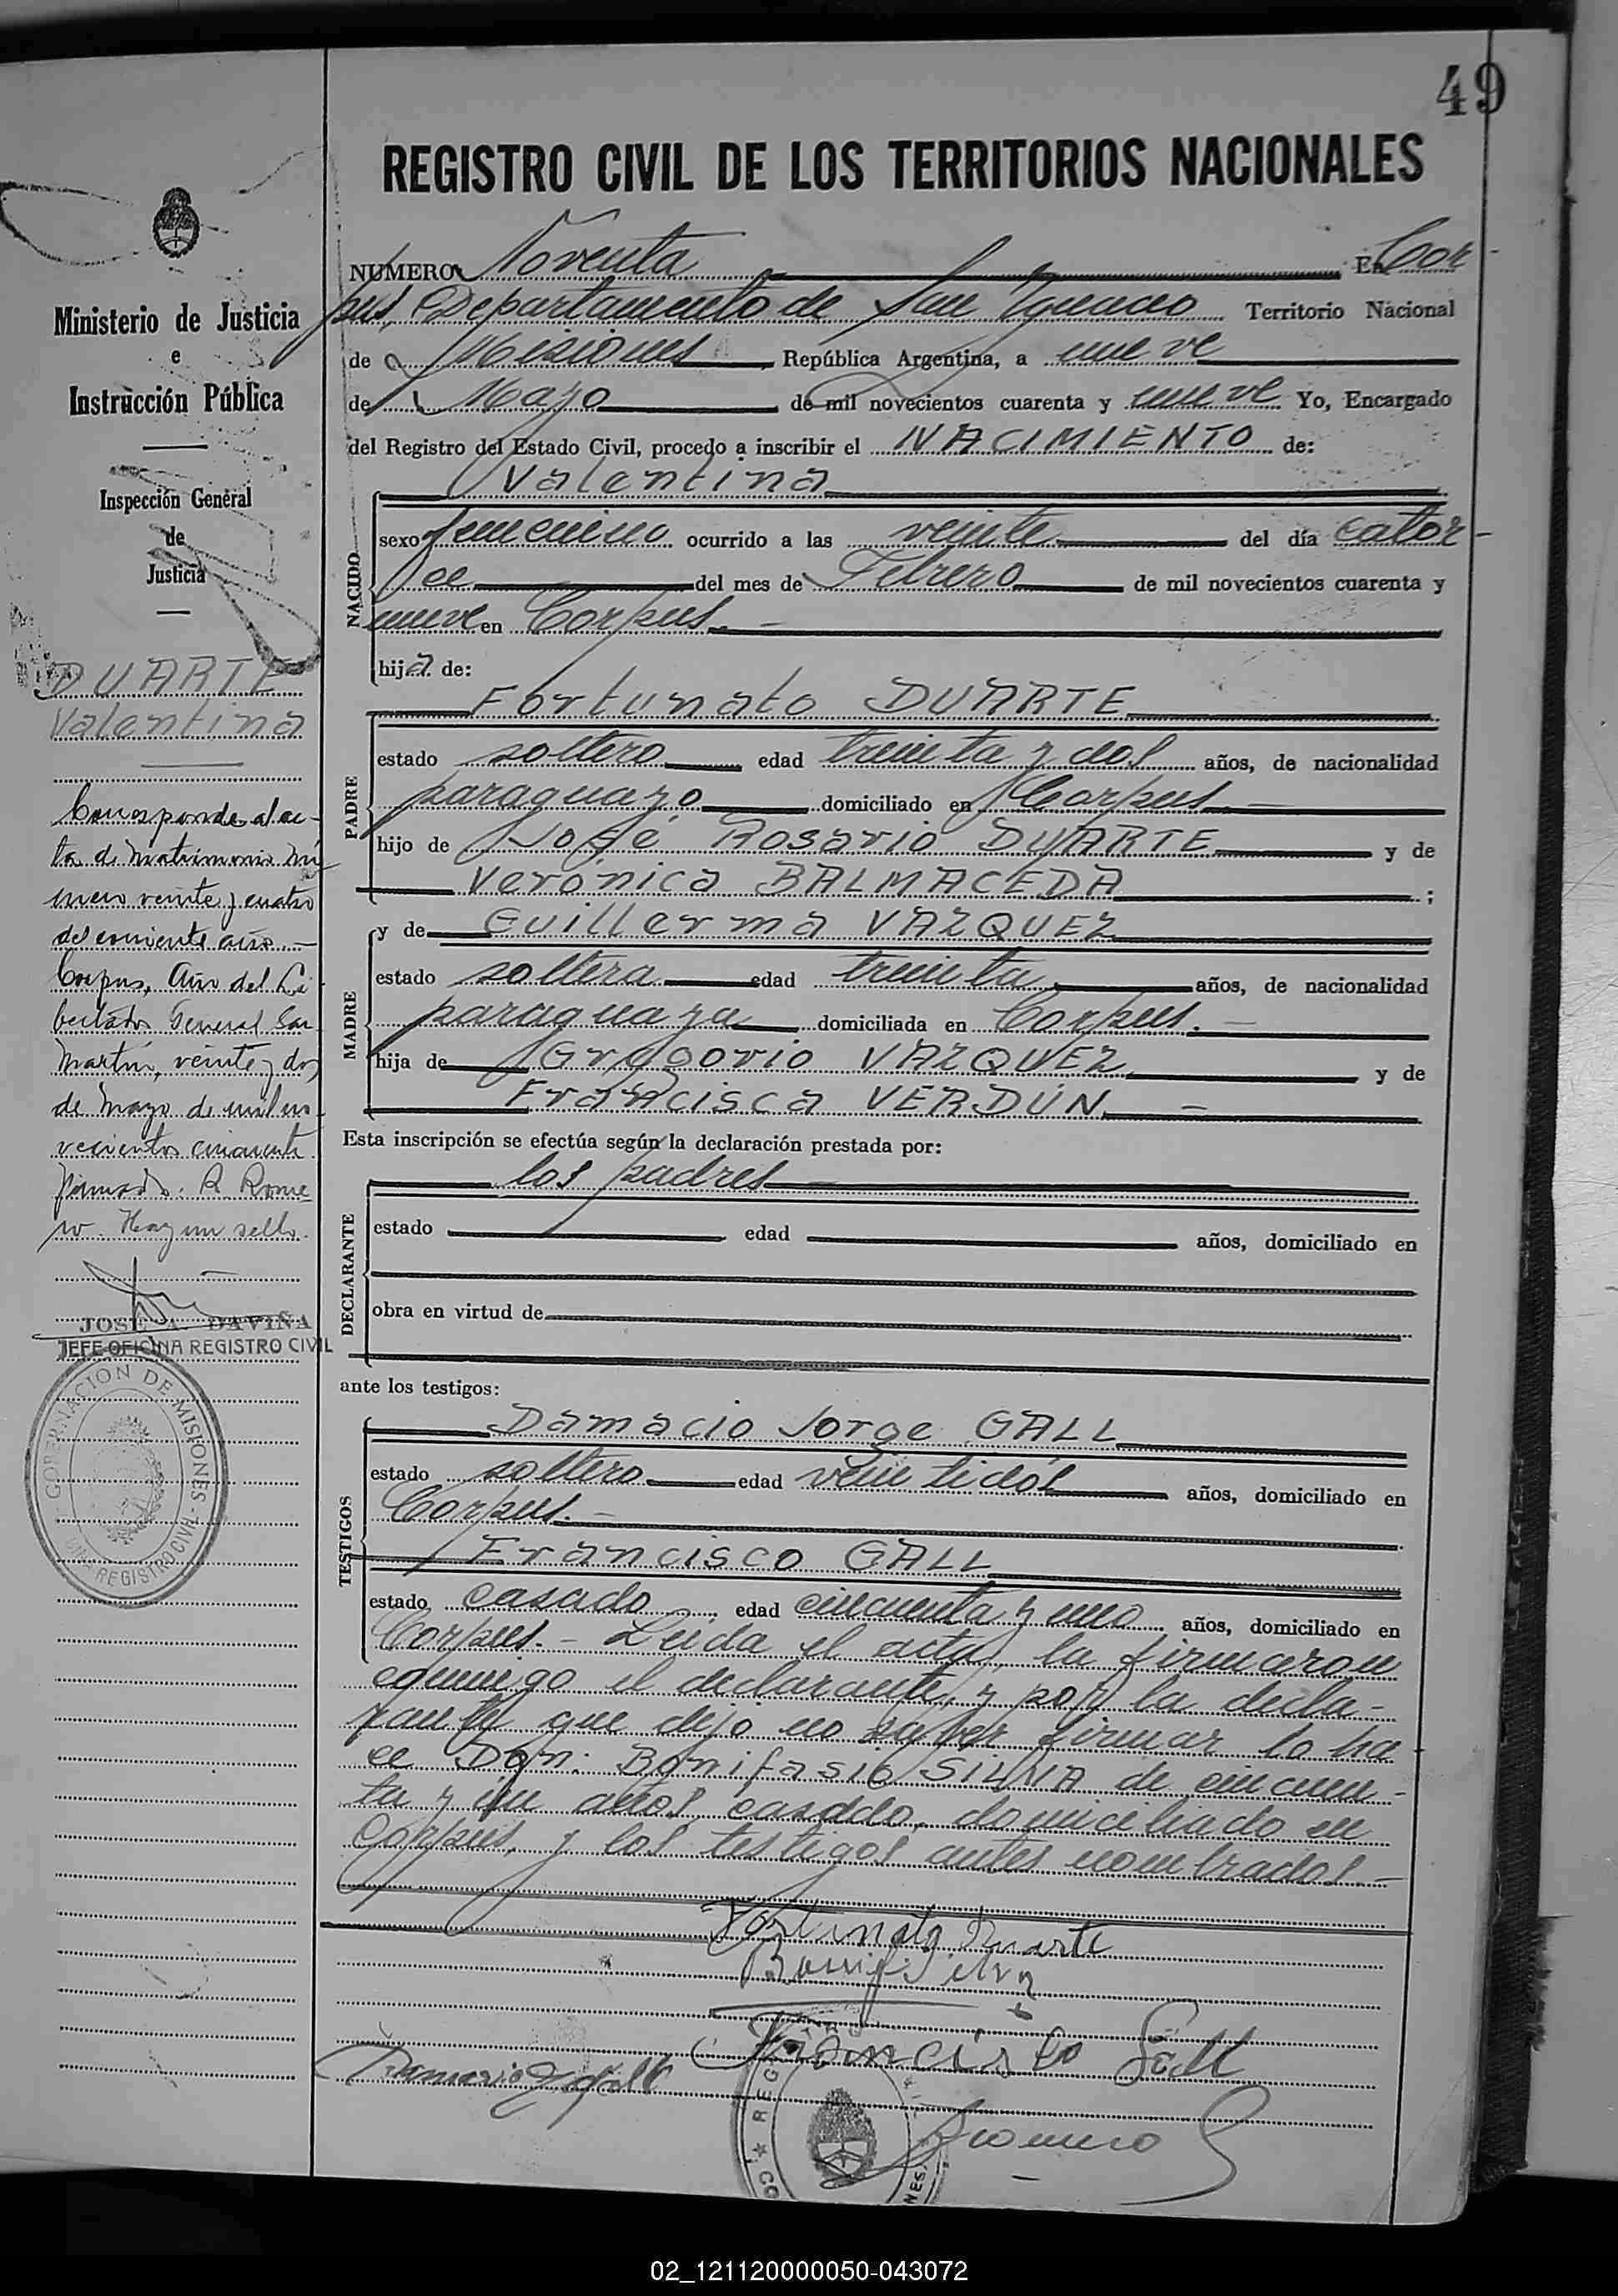 49
REGISTRO CIVIL DE LOS TERRITORIOS NACIONALES
NUMERO Noventa En Cor-
pus, Departamento de San Ignacio Territorio Nacional
de Misiones, República Argentina, a nueve
de Mayo de mil novecientos cuarenta y nueve Yo, Encargado
del Registro del Estado Civil, procedo a inscribir el NACIMIENTO de:
Valentina
NACIDO
sexo femenino ocurrido a las veinte del día cator-
ce del mes de Febrero de mil novecientos cuarenta y
nueve en Corpus. -
hija de:
Fortunato DUARTE
PADRE
estado soltero edad treinta y dos años, de nacionalidad
paraguayo domiciliado en Corpus. -
hijo de José Rosario DUARTE y de
Verónica BALMACEDA ;
y de Guillerma VAZQUEZ
MADRE
estado soltera edad treinta años, de nacionalidad
paraguaya domiciliada en Corpus. -
hija de Gregorio VAZQUEZ y de
Francisca VERDÚN -
Esta inscripción se efectúa según la declaración prestada por:
los padres
DECLARANTE
estado edad años, domiciliado en
obra en virtud de
ante los testigos:
Damacio Jorge GALL
TESTIGOS
estado soltero edad veintidós años, domiciliado en
Corpus. -
Francisco GALL
estado casado edad cincuenta y uno años, domiciliado en
Corpus. - Leída el acta, la firmaron
conmigo el declarante, y por la decla-
rante que dijo no saber firmar lo ha-
ce Don: Bonifasio SILVA de cincuen-
ta y un años, casado, domiciliado en
Corpus, y los testigos antes nombrados. -
Fortunato Duarte
Bonif Silva
Francisco Gall
Damacio J Gall
Romero
Ministerio de Justicia
e
Instrucción Pública
Inspección General
de
Justicia
DUARTE
Valentina
Corresponde al ac-
ta de matrimonio nú
mero veinte y cuatro
del corriente año. -
Corpus, Año del Li-
bertador General San
Martín, veinte y dos
de Mayo de mil no-
vecientos cincuenta
firmado: R. Rome
ro. Hay un sello.
JOSE A. DAVIÑA
JEFE OFICINA REGISTRO CIVIL
GOBERNACION DE MISIONES - REGISTRO CIVIL
02_121120000050-043072